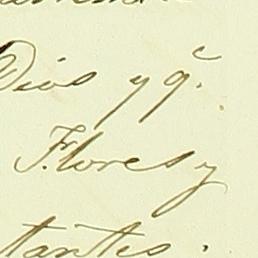 Dios y q̃.
Flores y
tantes.